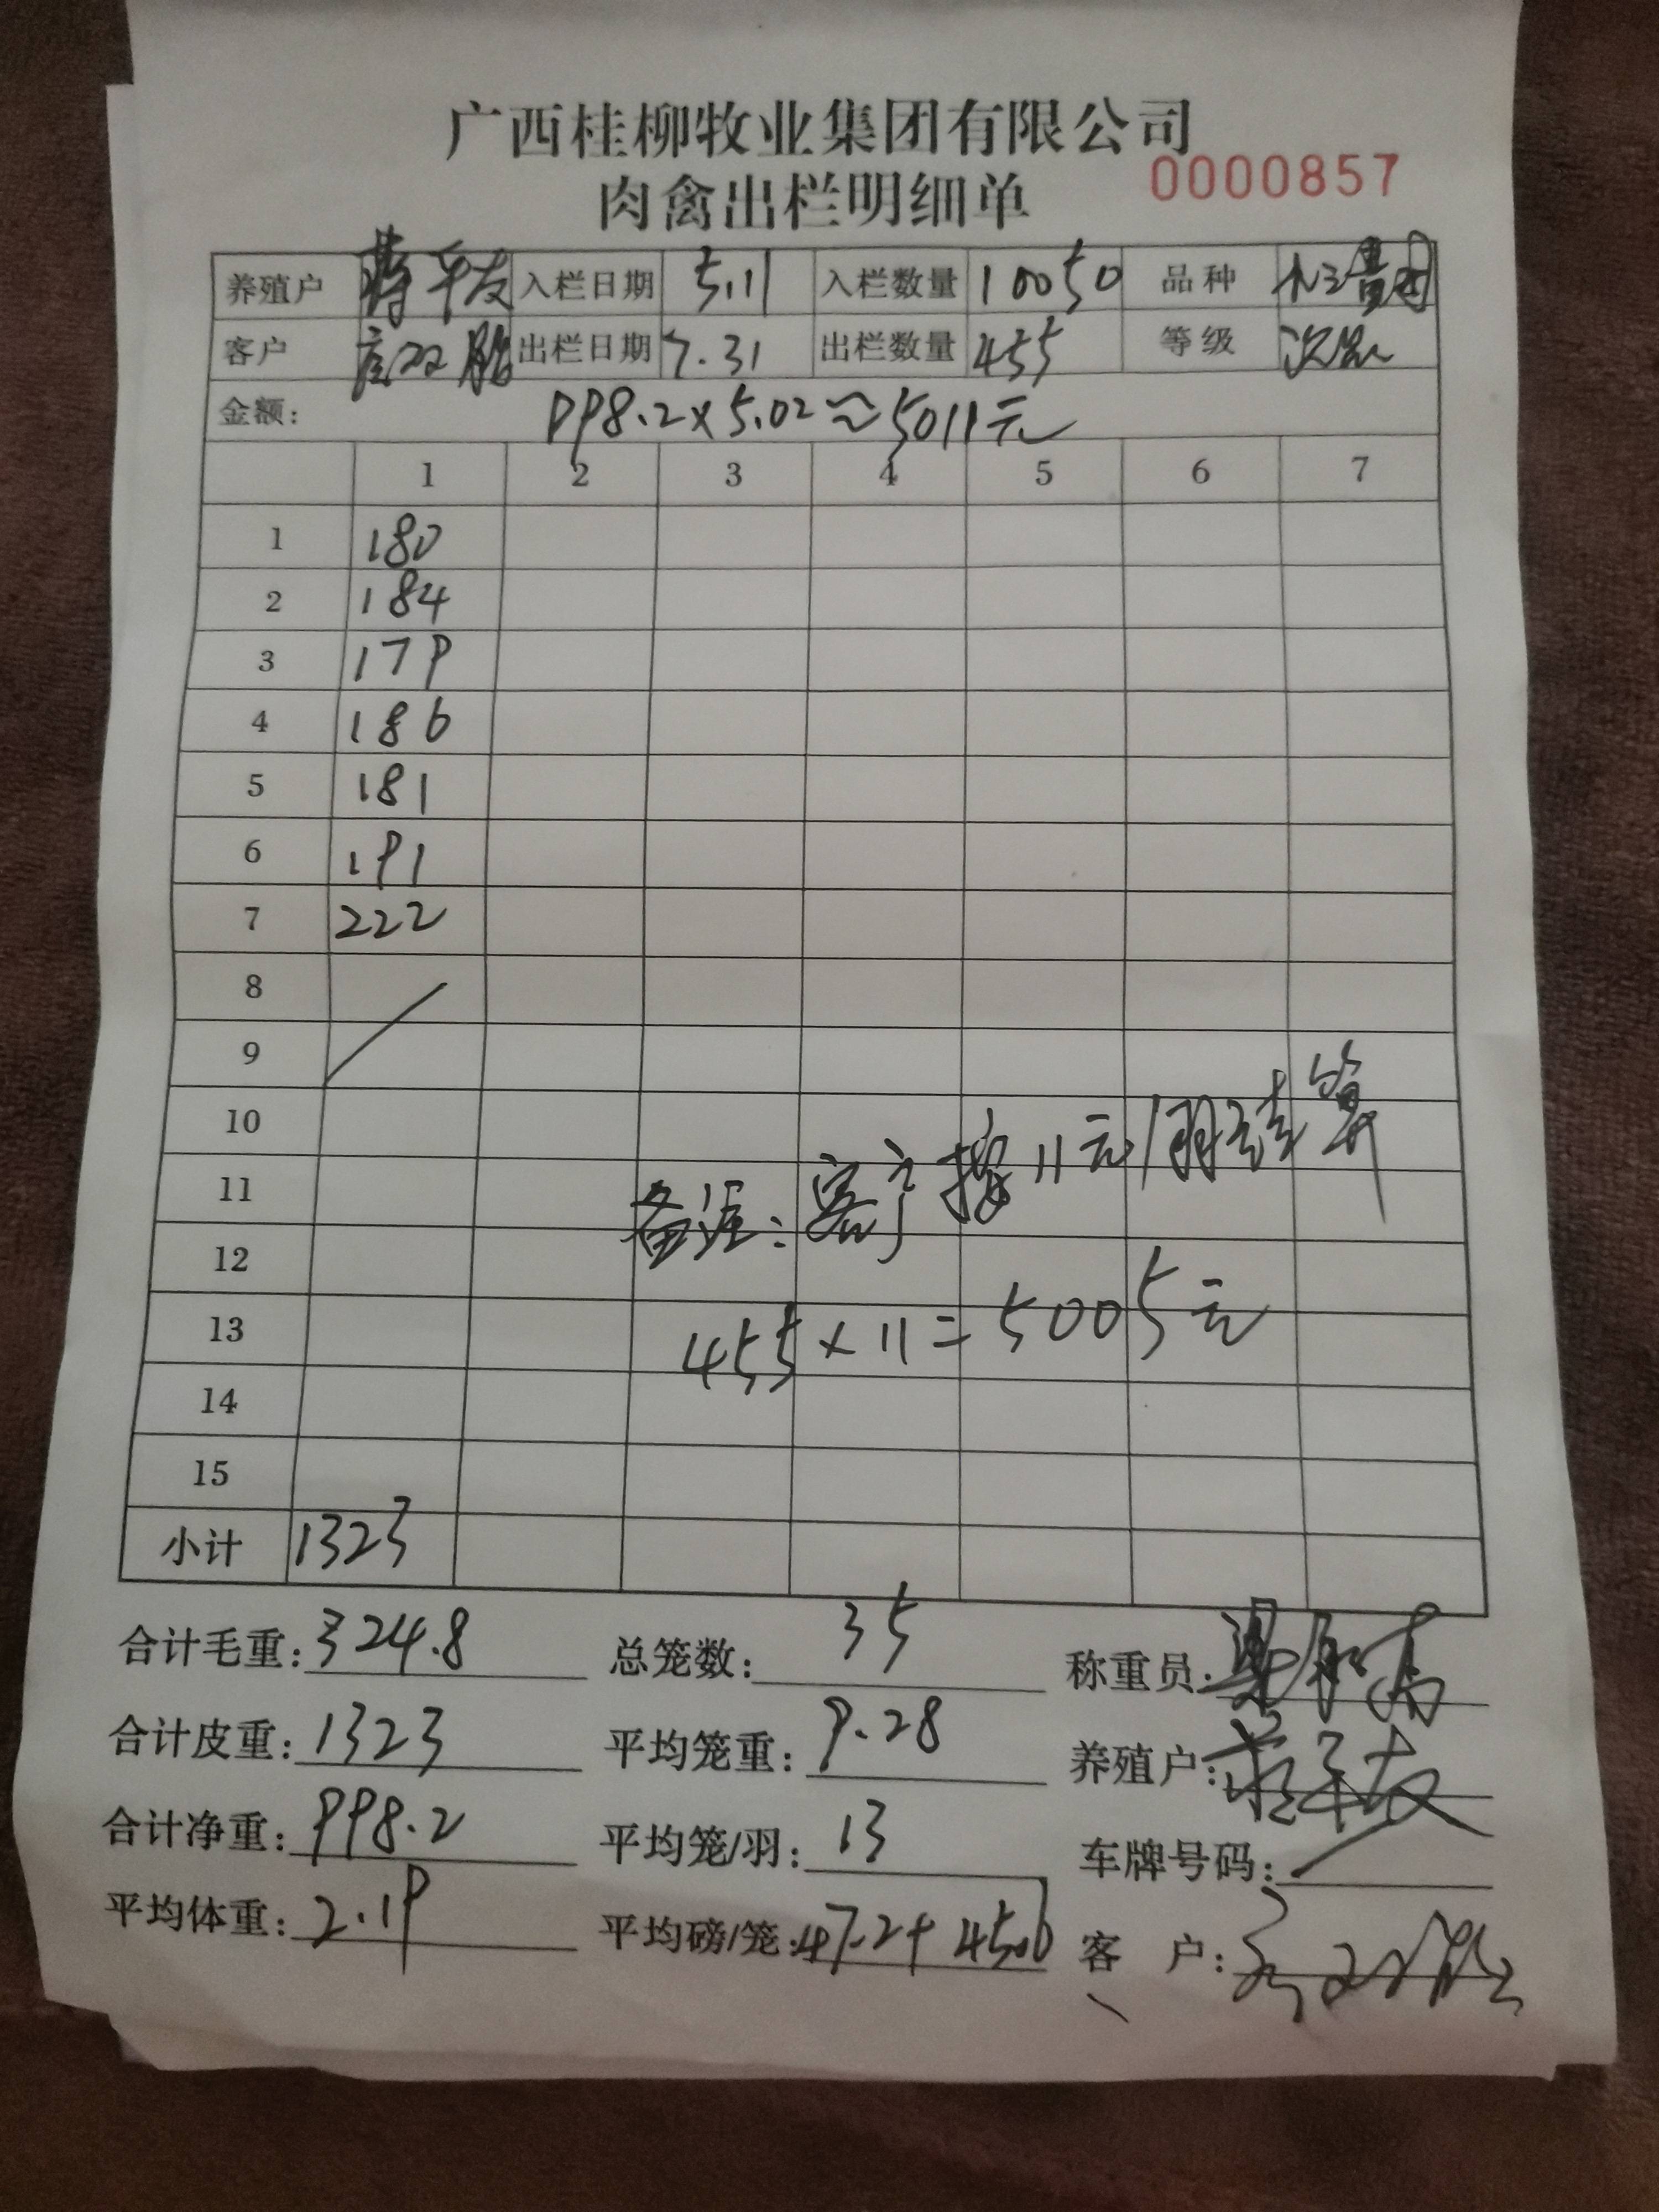 广西桂柳牧业集团有限公司
肉禽出栏明细单 0000857
养殖户 蒋平友 入栏日期 5.11 入栏数量 10050 品种
客户 双胎 出栏日期 7.31 出栏数量 455 等级 次品
金额: 998.2×5.02≈5011元
1 2 3 4 5 6 7
1 180
2 184
3 179
4 186
5 181
6 191
7 222
8
9
10
11 备注: 客户按11元/羽结算
12
13 455×11=5005元
14
15
小计 1323
合计毛重: 324.8 总笼数: 35 称重员:
合计皮重: 1323 平均笼重: 9.28 养殖户: 蒋平友
合计净重: 998.2 平均笼/羽: 13 车牌号码:
平均体重: 2.19 平均磅/笼: 47.2+45.06 客 户: